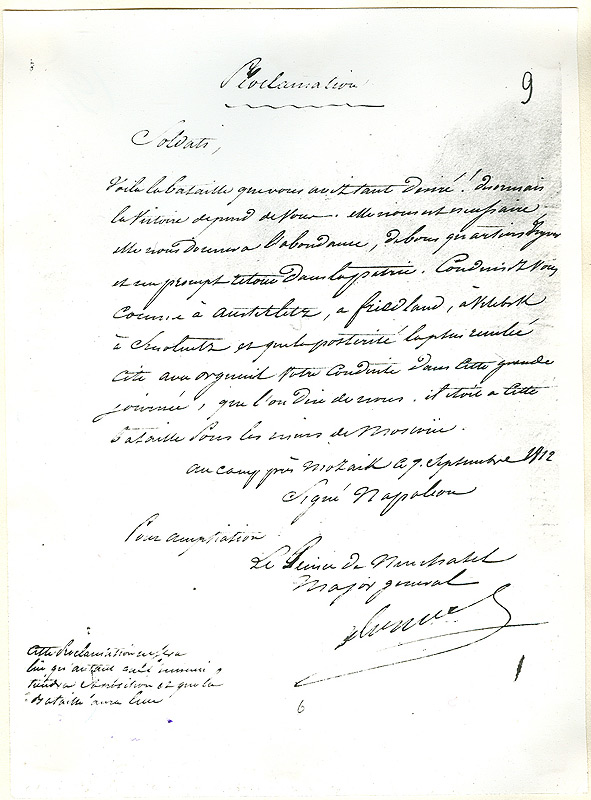 Proclamation
9
Soldats,
Voila la bataille que vous avez tant désiré! désormais
la Victoire dépend de Vous. elle nous est nécessaire
elle nous donnera l'abondance, de bons quartiers d'hyver
et un prompt retour dans la patrie. Conduisez Vous
comme à Austerlitz, a friedland, à Vitebsk
à Smolensk et que la postérité la plus reculée
cite avec orgueil Votre Conduite dans cette grande
journée, que l'on dise de vous. il étoit a cette
bataille sous les murs de Moscou.
au camp près Mozaik le 7 Septembre 1812
Signé Napoleon
Pour ampliation
Le Prince de Neuchatel
Major general
Cette Proclamation ne sera
lue qu'autant que l'ennemi
tiendra et que la
Bataille aura lieu
6